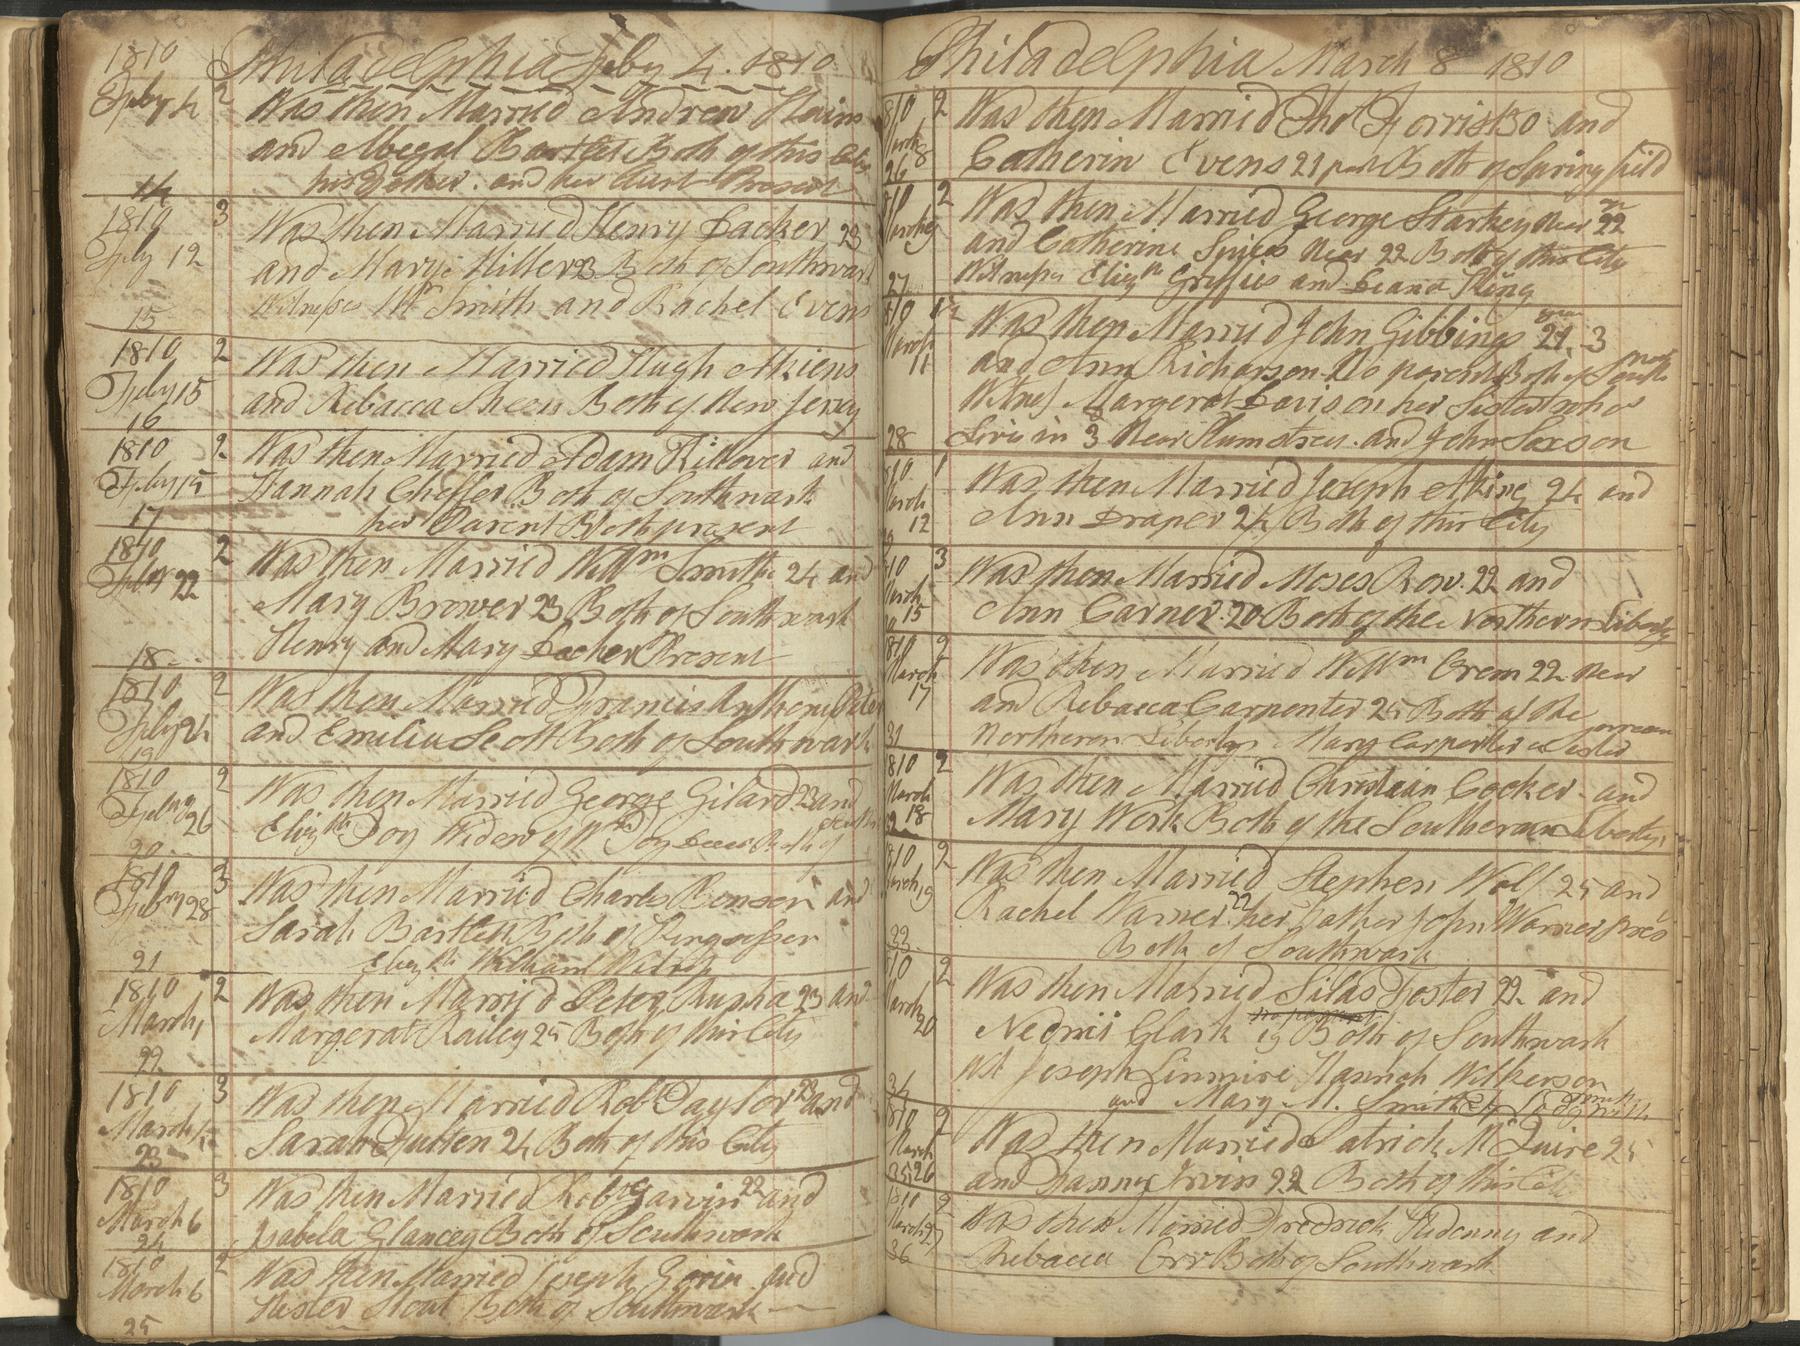 1810 Philadelphia Feby 4. 1810
Feby 4 2 Was then Married Andrew
and Abegal Bartlet Both of this City
14 his Father. and her Aunt Present
1810 3 Was then Married Henry Dacker 23
Feby 12 and Mary Miller 23 Both of Southwark
15 Witnesses Mr Smith and Rachel Evens
1810 2 Was then Married Hugh Atkens
Feby 15 and Rebacca Sheen Both of New Jersey
16
1810 2 Was then Married Adam Rillover and
Feby 15 Hannah Cheffer Both of Southwark
17 her Parent Both present
1810 2 Was then Married Willm Smith 24 and
Feby 22 Mary Brower 23 Both of Southwark
18 Henry and Mary Dacker Present
1810 2 Was then Married Francis Anthony
Feby 24 and Emilia Scott Both of Southwark
19
1810 2 Was then Married George Gilard 23 and
Feby 26 Elizth Foy Widow of Wm Foy Both of
20
1810 3 Was then Married Charls Benson and
Feby 28 Sarah Bartlett Both of Kingsesser
21 Elizth
1810 2 Was then Married Peter Rusha 23 and
March 1 Margerat Railey 25 Both of this City
22
1810 3 Was then Married Robt Taylor 23 and
March Sarah Sutten 24 Both of this City
23
1810 3 Was then Married Robt Garvin 22 and
March 6 Isabela Glancey Both of Southwark
24
1810 2 Was then Married Joseph and
March 6 Hester Both of Southwark
25
Philadelphia March 8 1810
1810 2 Was then Married Thos Forrist 30 and
March 8 Catherin Evens 21 past Both of Springfield
26
10 2 Was then Married George Starkey Near 22
March 9 and Catherine Spices Near 22 Both of this City
27 Witnesses Elizth Griffies and King
10 Was then Married John Gibbings 21. 3
March 11 and Ann Richarson No parent Both of South
Witness Margerat Davis on her Sister who
28 Live in 3 Near Plumstreet and John Saxson
10 1 Was then Married Joseph Atkins 24 and
March 12 Ann Draper 24 Both of this City
10 3 Was then Married Moses Row 22 and
March 15 Ann Garner 20 Both of the Northern Liberty
1810 2 Was then Married Willm Crem 22 Near
March 17 and Rebacca Carpenter 25 Both of the
31 Northeren Libertys Mary Carpenter a Sister
1810 2 Was then Married Christiain Cocker and
March 18 Mary Work Both of the Southeran Libertys
1810 2 Was then Married Stephen Wolf 25 and
March 19 Rachel Warner 22 her Father John Warner pres
33 Both of Southwark
10 2 Was then Married Silas Foster 22 and
March 20 Clark 19 Both of Southwark
Wt Joseph Linmire Hannah Wilkerson
34 and Mary M. Smith
1810 2 Was then Married Patrick McQuire 25
March 26 and Fanny Irvin 22 Both of this City
35
1810 2 Was then Married Fredrick Ridenny and
March 27 Rebacca Orr Both of Southwark
36